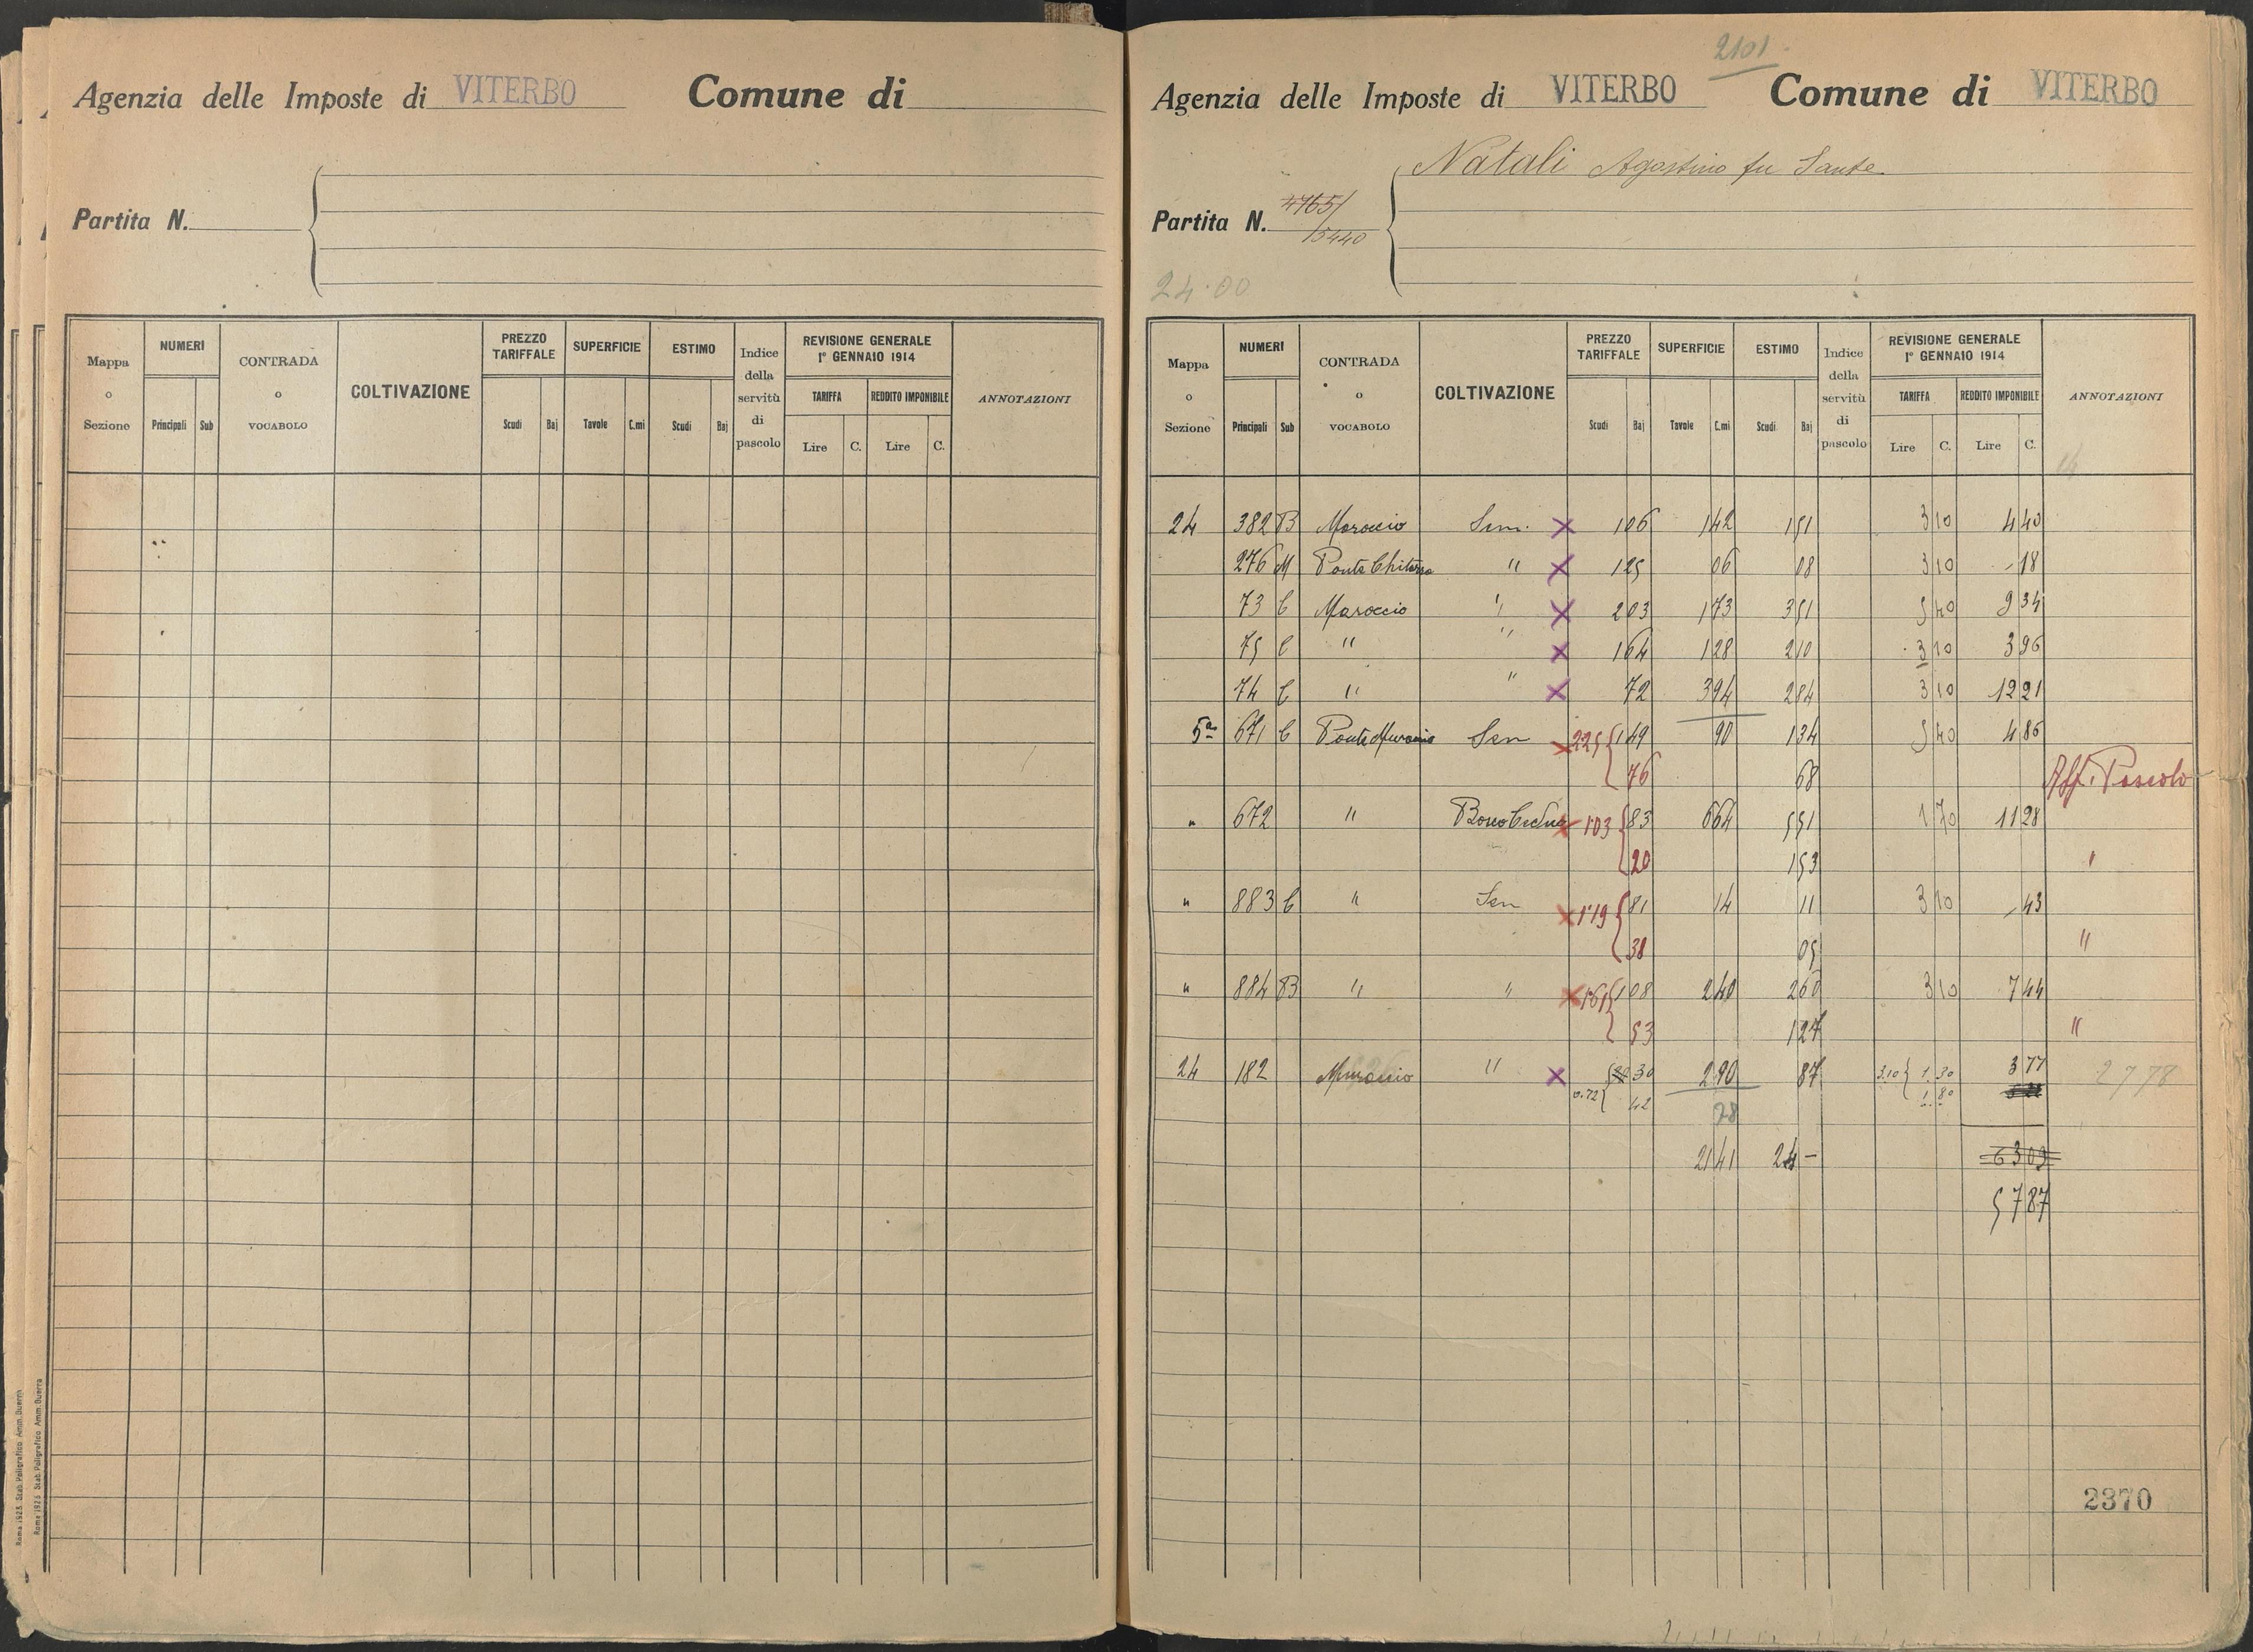 Agenzia delle Imposte di VITERBO Comune di
Partita N.
Mappa o Sezione NUMERI Principali Sub CONTRADA o VOCABOLO COLTIVAZIONE PREZZO TARIFFALE Scudi Baj SUPERFICIE Tavole C.mi ESTIMO Scudi Baj Indice della servitù di pascolo REVISIONE GENERALE 1° GENNAIO 1914 TARIFFA Lire C. REDDITO IMPONIBILE Lire C. ANNOTAZIONI
Roma 1923 Stab. Poligrafico Amm. Guerra
Roma 1925 Stab. Poligrafico Amm. Guerra
2101
Agenzia delle Imposte di VITERBO Comune di VITERBO
Natali Agostino fu Sante
Partita N. 4765/
15440
24.00
Mappa o Sezione NUMERI Principali Sub CONTRADA o VOCABOLO COLTIVAZIONE PREZZO TARIFFALE Scudi Baj SUPERFICIE Tavole C.mi ESTIMO Scudi Baj Indice della servitù di pascolo REVISIONE GENERALE 1° GENNAIO 1914 TARIFFA Lire C. REDDITO IMPONIBILE Lire C. ANNOTAZIONI
24 382 B Maroccio Sem. x 1 06 1 42 1 51 3 10 4 40
276 M " x 1 25 06 08 3 10 - 18
73 C Maroccio " x 2 03 1 73 3 51 5 40 9 34
75 C " " x 1 64 1 28 2 10 3 10 3 96
74 C " " x 72 3 94 2 84 3 10 12 21
5a 671 C Sem x 225 { 1 49 90 1 34 5 40 4 86
76 68 Aff. Pascolo
" 672 " Bosco Ceduo x 1.03 { 83 6 64 5 51 1 70 11 28
20 1 53 "
" 883 C " Sem x 1.19 { 81 14 11 3 10 - 43
38 05 "
" 884 B " " x 1.61 { 1 08 2 40 2 60 3 10 7 44
53 1 27 "
24 182 " x 30 2 90 87 3.10 { 1. 30 3 77 27 78
0.72 { 42 1. 80
28
21 41 24 - 63 09
57 87
2370